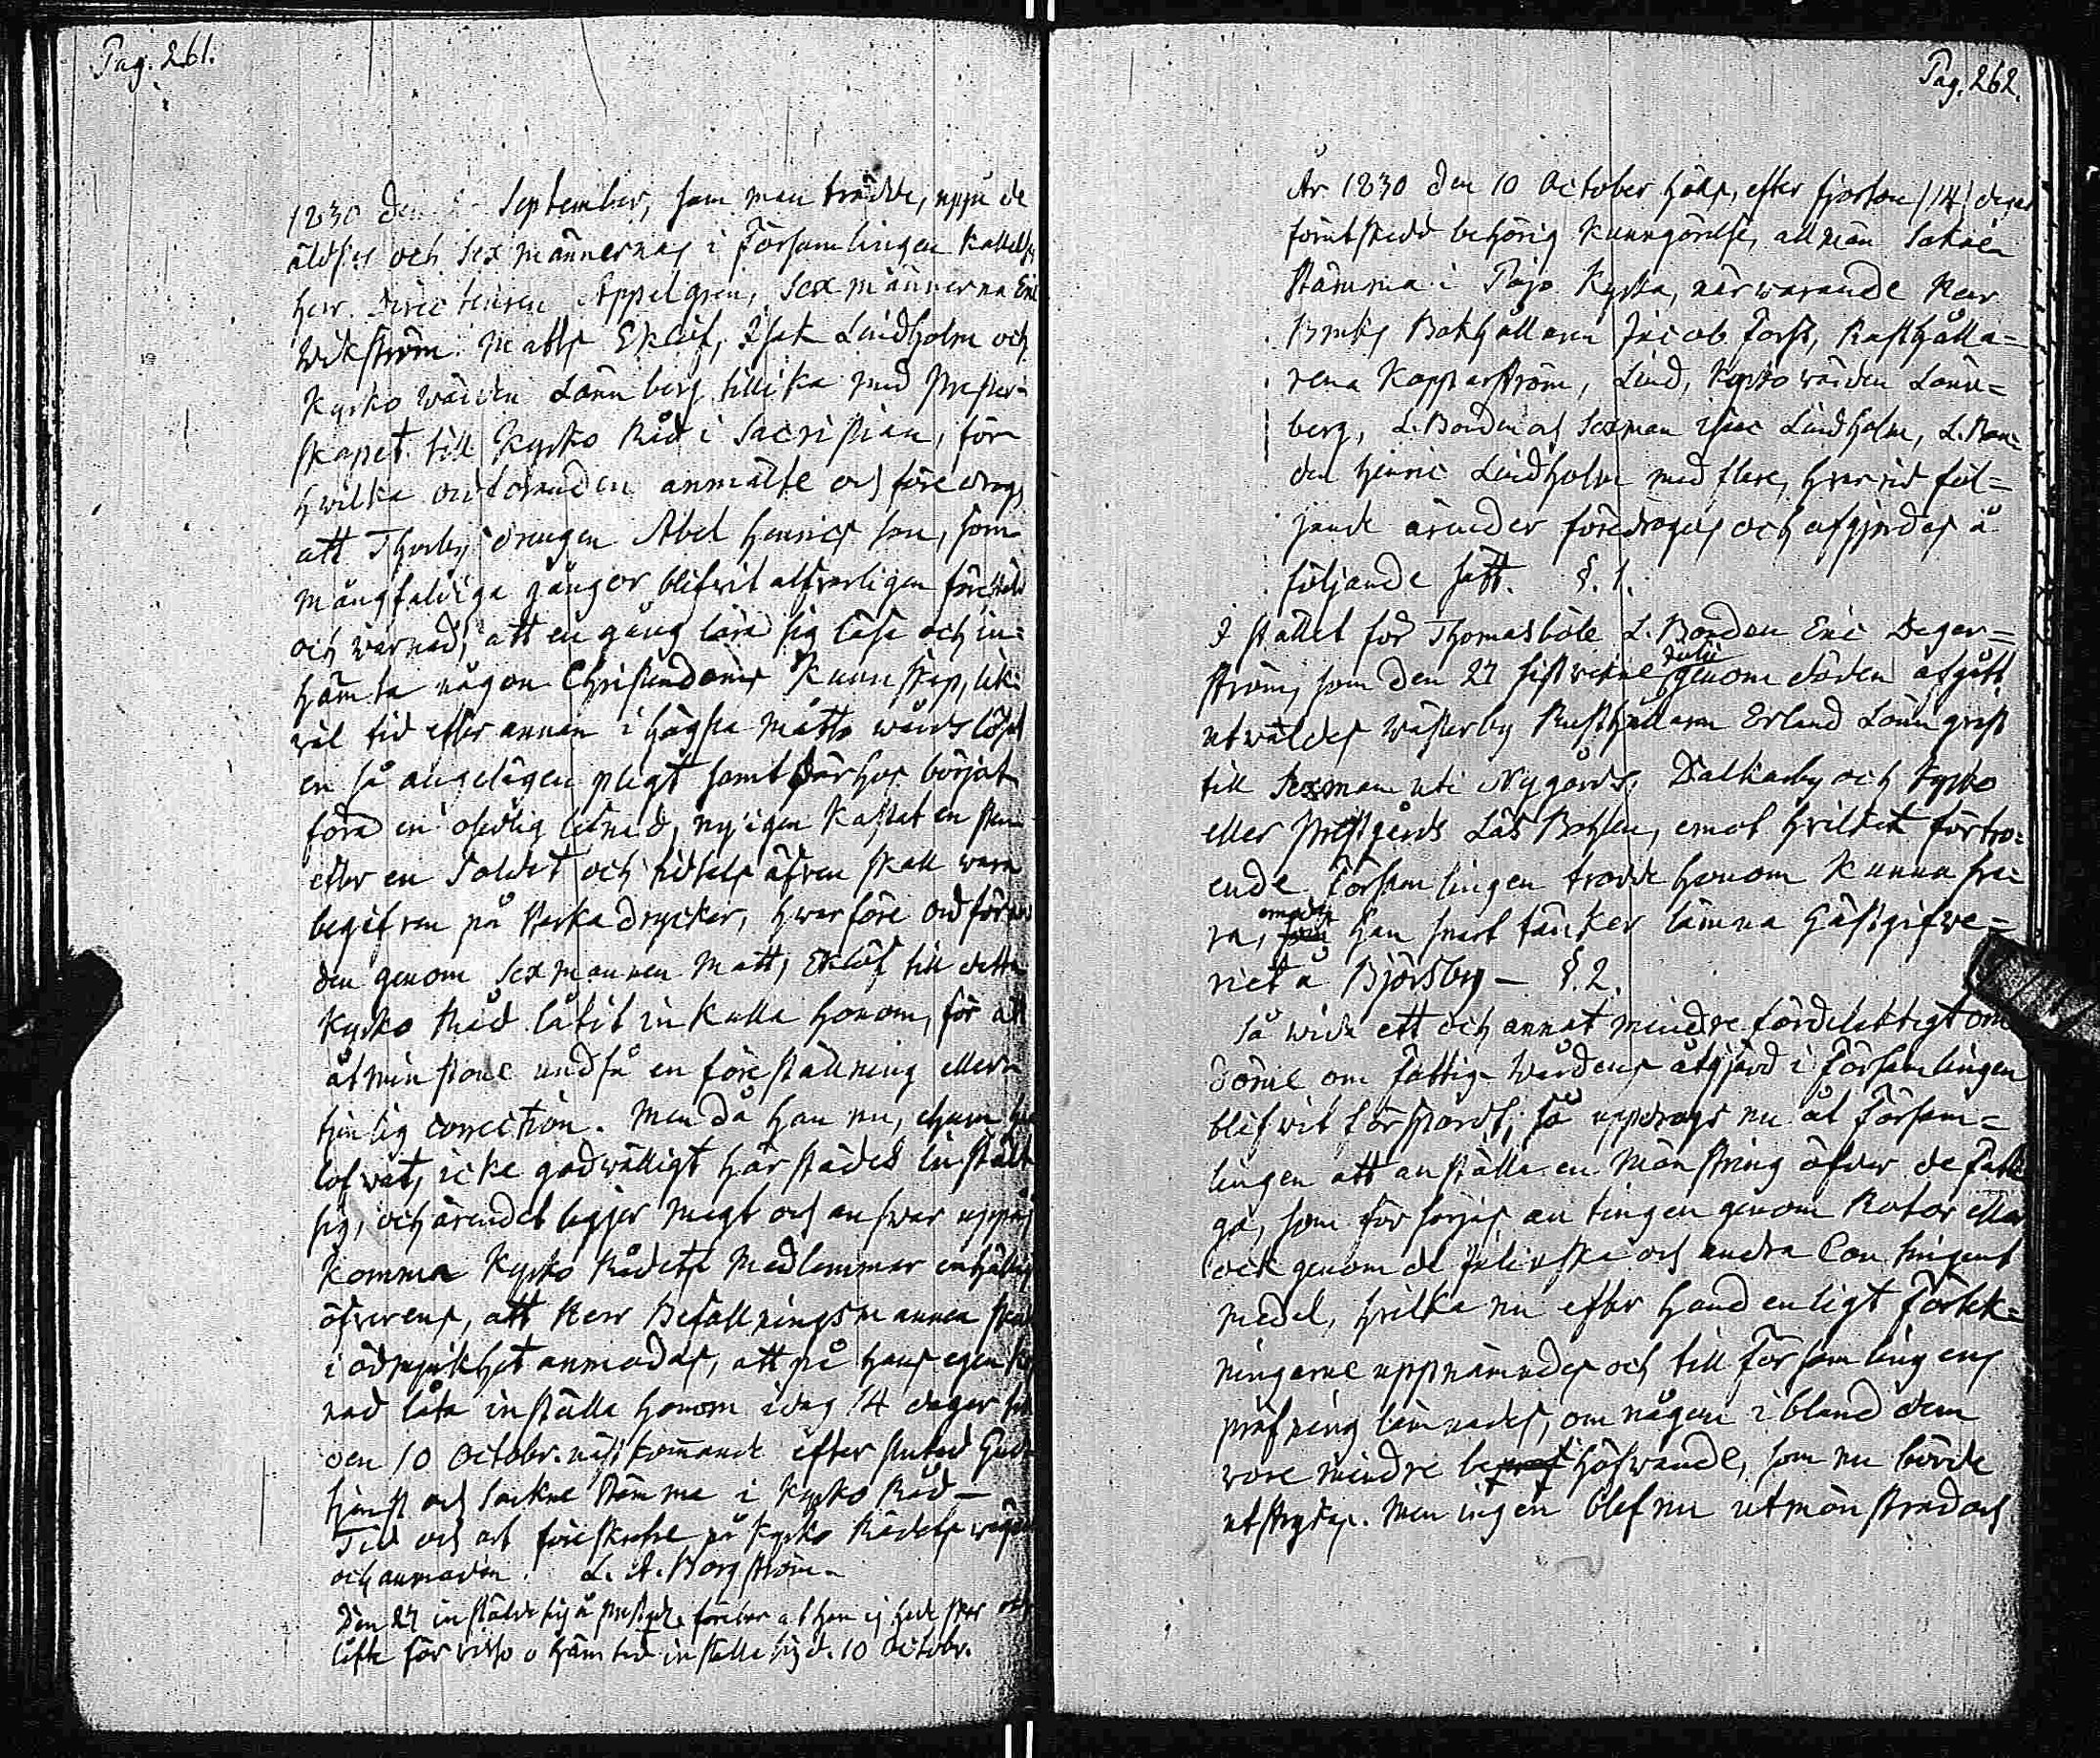 Pag. 261.
1830 den September, som man trädde, uppå de
äldstes och Sexmännernas i Församlingen kallelse
herr Directeuren Appelgren, Sexmännerna Eric
Wikström Matts Eklöf, Isak Lindholm och
Kyrko wärden Lönnberg tillika med Prester-
skapet till Kyrko Råd i Sacristian, för
hwilka ordföranden anmälte och föredrogs
att Thorby drengen Abel Henrics son, som
mångfaldiga gånger blifwit alfwarligen förestäld
och warnad, att en gång lära sig läsa och in-
hämta någon Christendoms Kunskap, lik-
wäl tid efter annan i högsta måtto wårdslösat
en så angelägen pligt samt därhos börjat
föra en osedlig lefnad, ny'igen Kastat en sten
efter en Soldat och tidtals äfven skall wara
begifven på starka drycker, hwarföre ordföran
den genom Sexmannen Matts Eklöf till detta
Kyrko Råd låtit inkalla honom, för att
åtminstone undfå en föreställning eller
tjenlig correction. Men då han nu, ehuru han
lofvat, icke godwilligt härstädes instält
sig, och ärendet ligger magt och answar uppå,
komma Kyrko Rådets Medlemmar enhälligt
öfverens, att Herr Befallningsmannen skall
i ödmjukhet anmodas, att på hans egen kost
nad låta inställa honom idag 14 dagar till
den 10 Octobr. nästkommande efter slutad Gud-
tjenst och Sockne Stämma i Kyrko Råd—
Tid och ort föreskrefne på Kyrko Rådets wägnar
och anmodan. L. A. Borgström.
Den 27 instälde sig å prestgd. att han ej hade
löfte för inställa sig d. 10 Octobr.
Pag. 262.
År 1830 den 10 October hölls, efter fjorton /14/ dagar
förutskedd behörig Kunngörelse, allmän Sokne
Stämma i Pojo Kyrka, närwarande Herr
Bruks Bokhållaren Jacob Forss, Rusthålla-
rena Kopparström, Lind, Kyrko wärden Lönn-
berg, L. Bonden och Sexman Isac Lindholm, L. Bon-
den Henric Lindholm med flere, hwarwid föl-
jande ärender föredrogos och afgjordes å
följande sätt. §. 1.
I stället för Thomasböle L. Bonden Eric Deger-
ström, som den 27 sistvekne Julii genom döden afgått
utwaldes Wästerby Rusthållaren Erland Lönnqvist
till Sexman uti Nygårds, Dalkarby och Kyrko
eller Prestgårds Läs Bohlen, emot hvilket förtro-
ende Församlingen trodde honom Kunna sva-
ra, emedan han snart tänker lämna Gästgifwe-
riet å Björsby — §. 2.
Så wida ett och annat mindre fördelaktigt om
döme om Fattig Wårdens åtgjärd i Församlingen
blifwit försport; så uppdrogs nu åt Försam-
lingen att anställa en Mönstring öfver de Fatti
ga, som försörjes antingen genom Rotar eller
ock genom de Julinska och andra Contingent
medel, hvilka nu efter hand enligt Förtek-
ningarne uppnämndes och till Församlingens
pröfning lämnades, om någon ibland dem
wore mindre behöfwande, som nu borde
utstrykas. Men ingen blef nu utmönstrad och